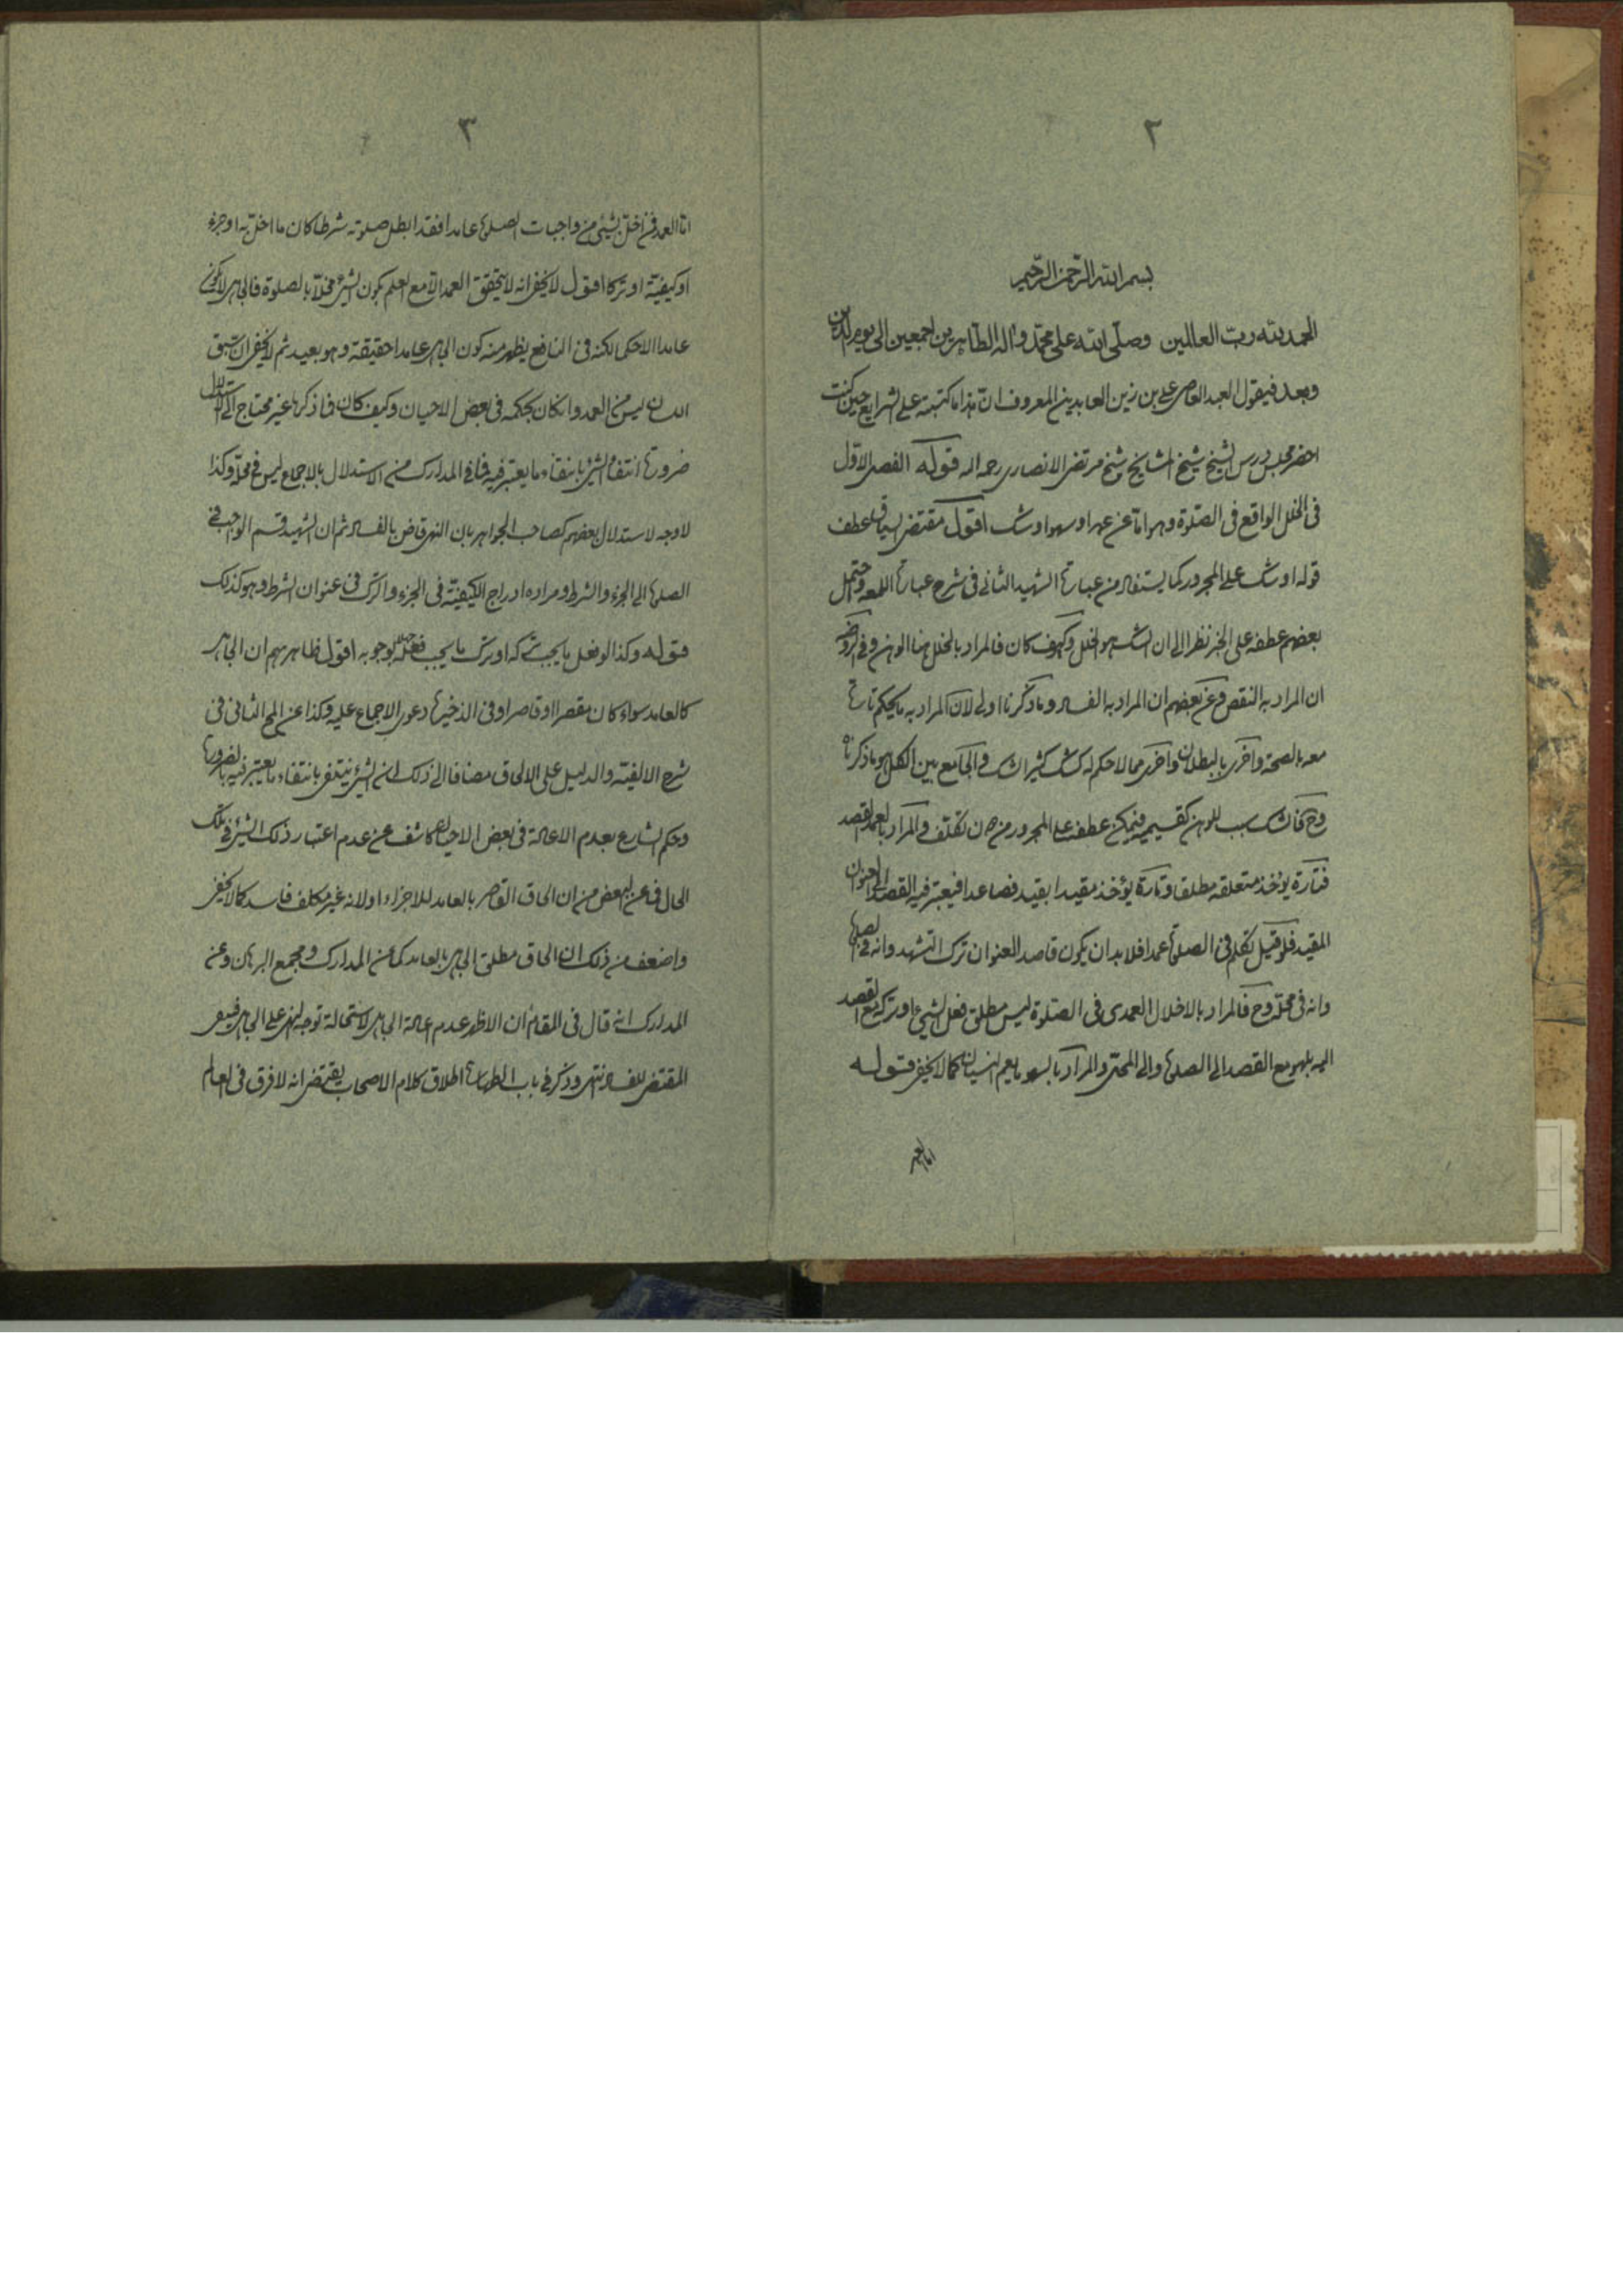 ٢
بسم الله الرحمن الرحيم
الحمد لله رب العالمين وصلّى الله على محمّد واله الطّاهرين اجمعين الى يوم الدين
وبعد فيقول العبد العاصى على بن زين العابدين المعروف انّ هذا ما كتبته على الشرايع حين كنت
احضر مجلس درس الشيخ شيخ المشايخ شيخ مرتضى الانصارى رحمه الله قوله الفصل الاوّل
فى الخلل الواقع فى الصّلوة وهو امّا عن عمد او سهو او شك اقول مقتضى السياق عطف
قوله او شك على المجرور كما يستفاد من عبارة الشهيد الثانى فى شرح عبارة اللمعه واحتمل
بعضهم عطفه على الخبر نظرا الى ان الشك هو الخلل وكيف كان فالمراد بالخلل هنا الوهن وفى الروضه
ان المراد به النقص وعن بعضهم ان المراد به الفساد وما ذكرنا اولى لان المراد به ما يحكم تارة
معه بالصحة واخرى بالبطلان واخرى مما لا حكم له كشك كثير الشك والجامع بين الكل هو ما ذكرنا
وح فالشك سبب للوهن كقسيميه فيمكن عطفه على المجرور من دون تكلّف والمراد بالعمد القصد
فتارة يؤخذ متعلقه مطلقا وتارة يؤخذ مقيدا بقيد فصاعدا فيعتبر فيه القصد الى العنوان
المقيد فلو قيل تكلم فى الصلوة عمدا فلا بد ان يكون قاصدا لعنوان ترك التشهد وانه فى الصلوة
وانه فى محلّه وح فالمراد بالاخلال العمدى فى الصّلوة ليس مطلق فعل الشيء او تركه مع القصد
اليه بل هو مع القصد الى الصلوة والى المحل والمراد بالسهو ما يعم النسيان كما لا يخفى قوله
اما العمد
٣
امّا العمد فمن اخلّ بشيء من واجبات الصلوة عامدا فقد ابطل صلوته شرطا كان ما اخلّ به او جزء
او كيفيّة او تركا اقول لا يخفى انه لا يتحقق العمد الّا مع العلم بكون الشيء مخلّا بالصلوة فالجاهل لا يكون
عامدا الا حكما لكنه فى النافع يظهر منه كون الجاهل عامدا حقيقة وهو بعيد ثم لا يخفى ان سبق
اللسان ليس من العمد وان كان بحكمه فى بعض الاحيان وكيف كان فما ذكره غير محتاج الى الاستدلال
ضرورة انتفاء الشيء بانتفاء ما يعتبر فيه فما فى المدارك من الاستدلال بالاجماع ليس فى محلّه وكذا
لا وجه لاستدلال بعضهم كصاحب الجواهر بان النهى قاض بالفساد ثم ان الشهيد قسم الواجب فى
الصلوة الى الجزء والشرط ومراده ادراج الكيفيّة فى الجزء والترك فى عنوان الشرط وهو كذلك
قوله وكذا لو فعل ما يجب تركه او ترك ما يجب فعله جهلا بوجوبه اقول ظاهرهم ان الجاهل
كالعامد سواء كان مقصرا او قاصرا وفى الذخيرة دعوى الاجماع عليه وكذا عن المح الثانى فى
شرح الالفيّة والدليل على الالحاق مضافا الى ذلك ان الشيء ينتفى بانتفاء ما يعتبر فيه بالضرورة
وحكم الشارع بعدم الاعادة فى بعض الاحيان كاشف عن عدم اعتبار ذلك الشيء فى تلك
الحال فما عن البعض من ان الحاق القاصر بالعامد للاجزاء اولانه غير مكلف فاسد كما لا يخفى
واضعف من ذلك ان الحاق مطلق الجاهل بالعامد كما عن المدارك ومجمع البرهان وعن
المدارك انه قال فى المقام ان الاظهر عدم اعادة الجاهل لاستحالة توجه النهى على الجاهل فينتفى
المقتضى للفساد انتهى وذكر فى باب الطهارة اطلاق كلام الاصحاب يقتضى انه لا فرق فى العالم